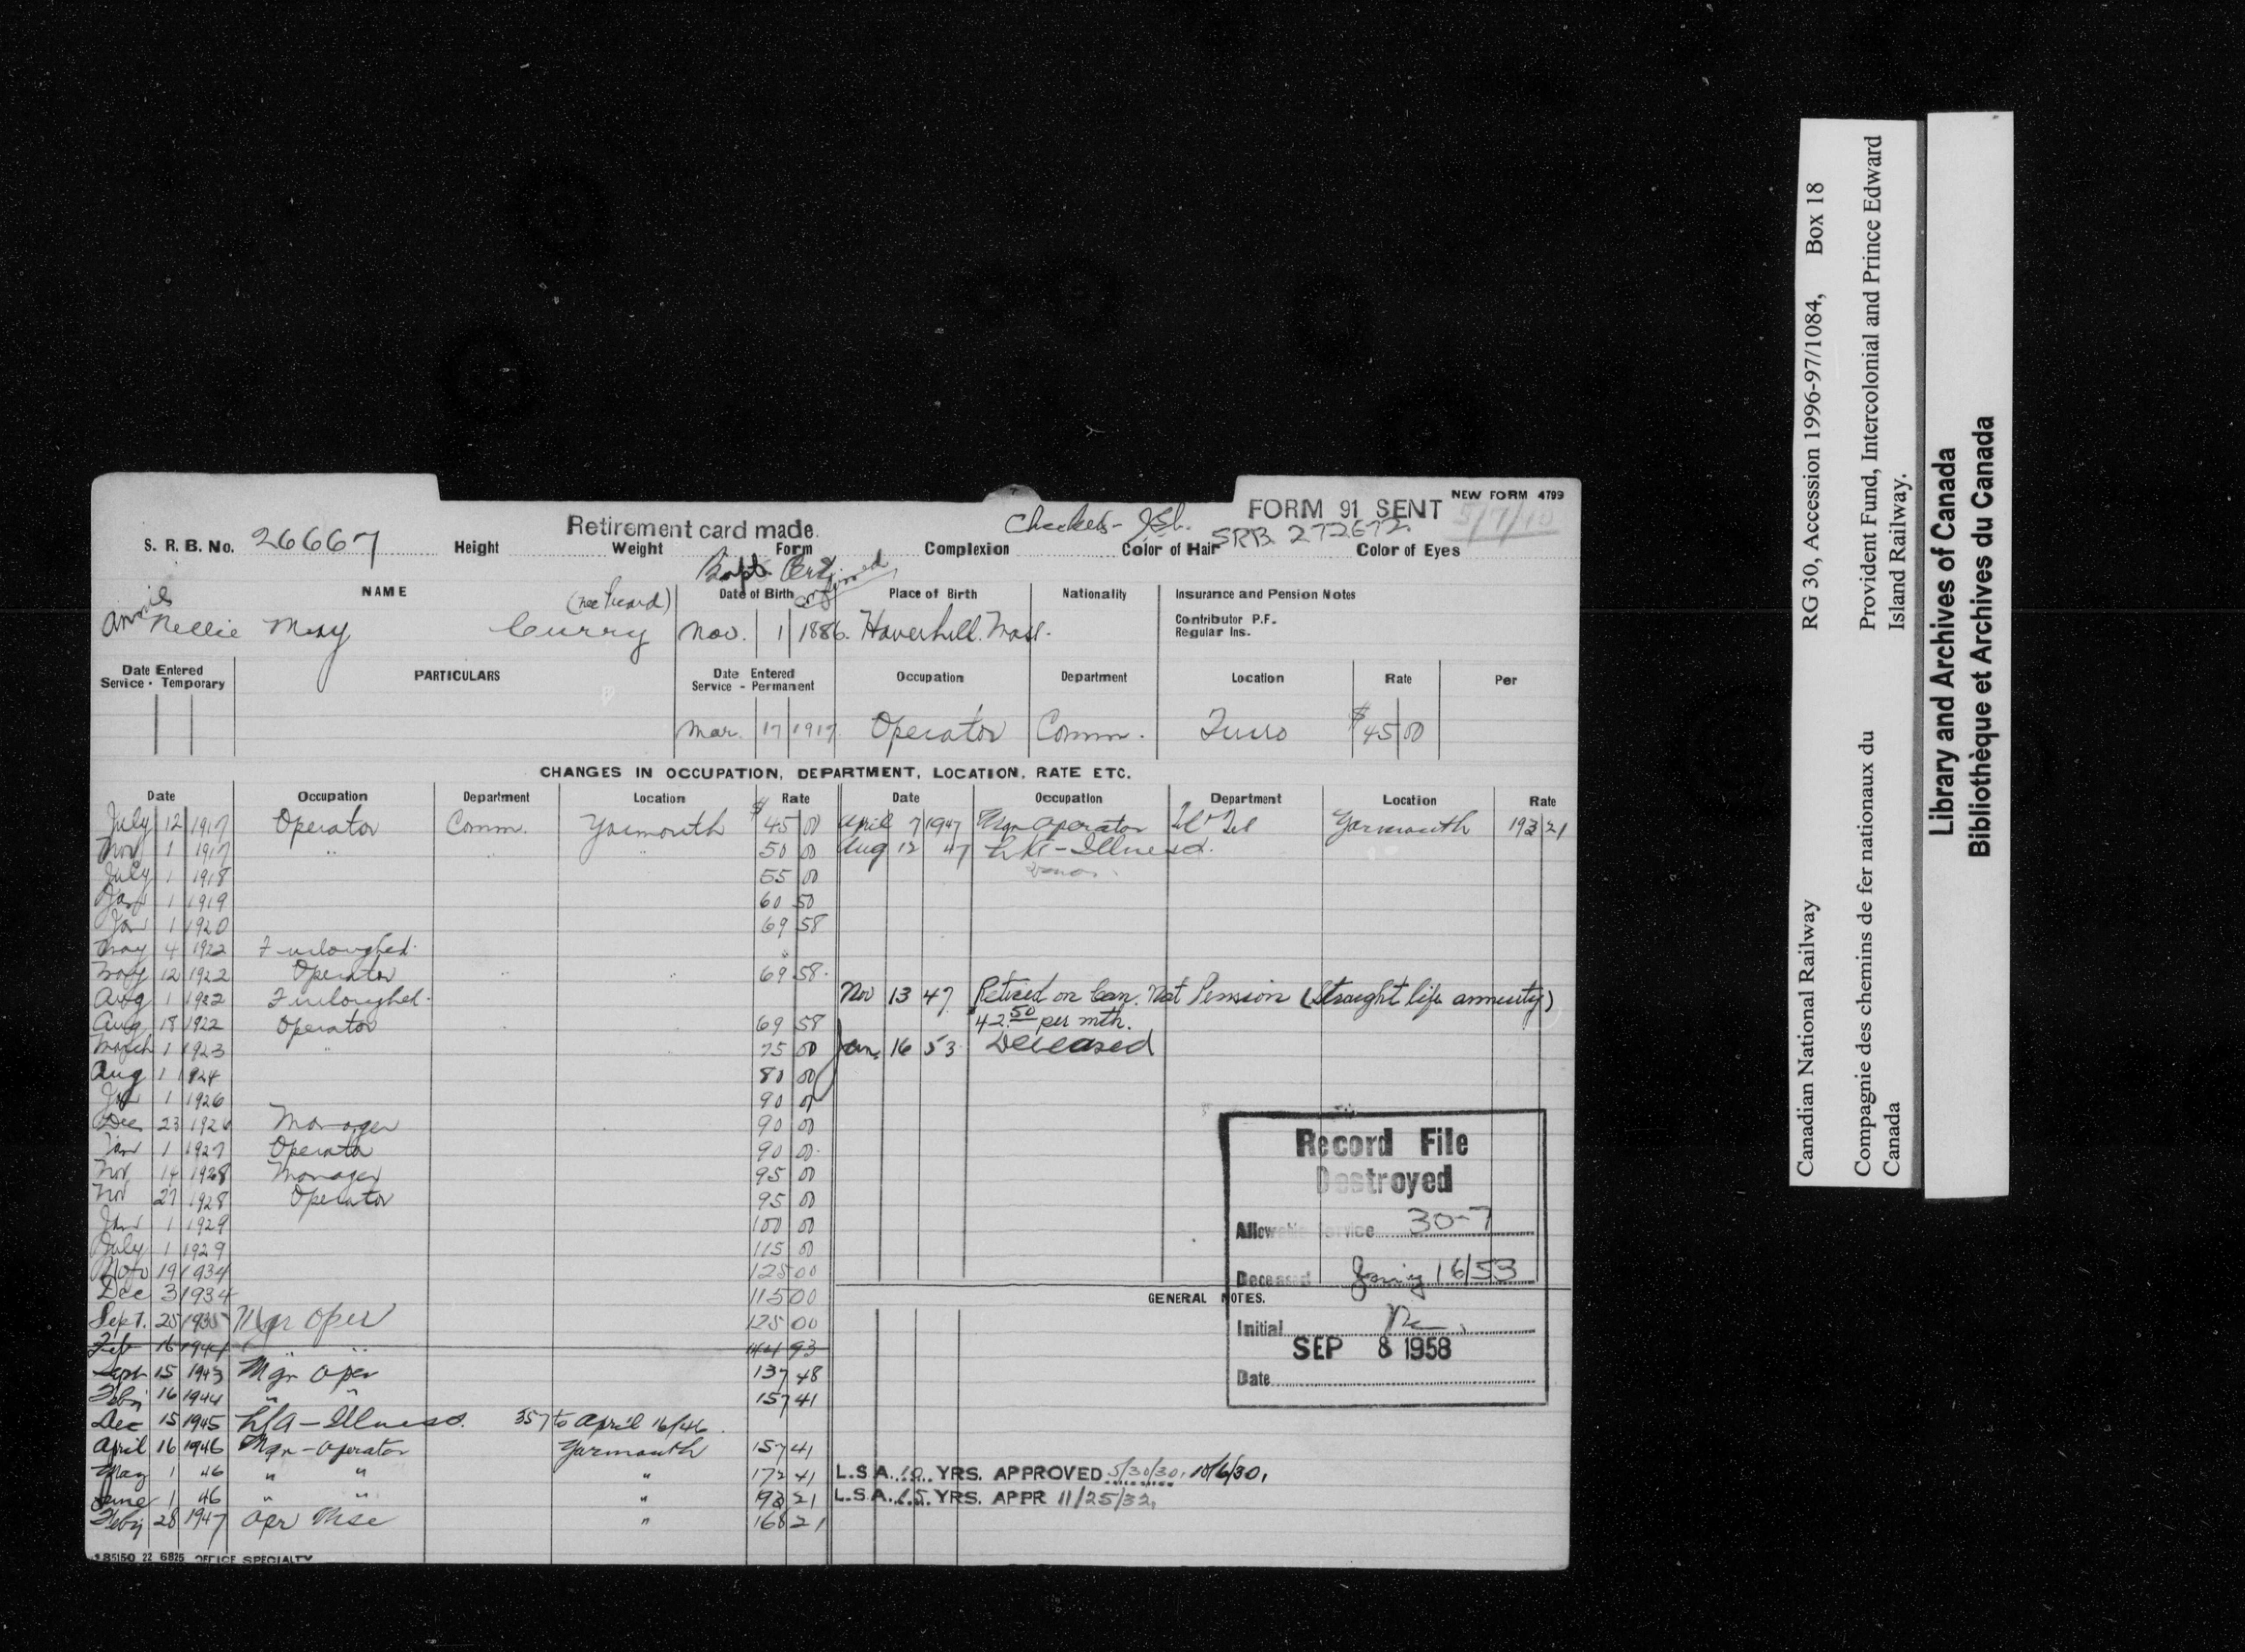 FORM 91 SENT
NEW FORM 4799
Retirement card made.
Checked - 
5/7/40
S. R. B. No. 26667 Height Weight Form Complexion Color of Hair SRB 272672 Color of Eyes
Bapt. Cert. confirmed
NAME (nee Heard) Date of Birth Place of Birth Nationality Insurance and Pension Notes
Annie Nellie May Curry Nov. 1 1886. Haverhill. Mass.
Contributor P.F.
Regular Ins.
Date Entered Service - Temporary PARTICULARS Date Entered Service - Permanent Occupation Department Location Rate Per
Mar. 17 1917 Operator Comm. Truro $45 00
CHANGES IN OCCUPATION, DEPARTMENT, LOCATION, RATE ETC.
Date Occupation Department Location Rate
July 12 1917 Operator Comm. Yarmouth $45 00
Nov 1 1917 " " " 50 00
July 1 1918 55 00
Jan 1 1919 60 50
Jan 1 1920 69 58
May 4 1922 Furloughed "
May 12 1922 Operator " " 69 58
Aug 1 1922 Furloughed
Aug 18 1922 Operator 69 58
March 1 1923 " 75 00
Aug 1 1924 80 00
Jan 1 1926 90 00
Dec 23 1926 Manager 90 00
Jan 1 1927 Operator 90 00
Nov 14 1928 Manager 95 00
Nov 27 1928 Operator 95 00
Jan 1 1929 100 00
July 1 1929 115 00
Nov 19 1934 125 00
Dec 3 1934 115 00
Sept. 25 1935 Mgr Oper 125 00
Feb 16 1944 " " 144 93
Sept 15 1943 Mgr Oper 137 48
Feby 16 1944 " " 157 41
Dec 15 1945 L/A - Illness. 357 to April 16/46.
April 16 1946 Mgr - Operator Yarmouth 157 41
May 1 46 " " " 172 41
June 1 46 " " " 193 21
Feby 28 1947 Opr Mse " 168 21
185150 22 6825 OFFICE SPECIALTY
Date Occupation Department Location Rate
April 7 1947 Mgr Operator Tel Yarmouth 193 21
Aug 12 47 L/A - Illness.
Nov 13 47 Retired on Can. Nat Pension (Straight life annuity)
42.50 per mth.
Jan. 16 53 Deceased
GENERAL NOTES.
Record File
Destroyed
Allowable Service 30-7
Deceased Jan'y 16/53
Initial
SEP 8 1958
Date
L.S.A. 10 YRS. APPROVED 5/30/30, 10/6/30,
L.S.A. 15 YRS. APPR 11/25/32,
Canadian National Railway RG 30, Accession 1996-97/1084, Box 18
Compagnie des chemins de fer nationaux du Canada
Provident Fund, Intercolonial and Prince Edward Island Railway.
Library and Archives of Canada
Bibliothèque et Archives du Canada